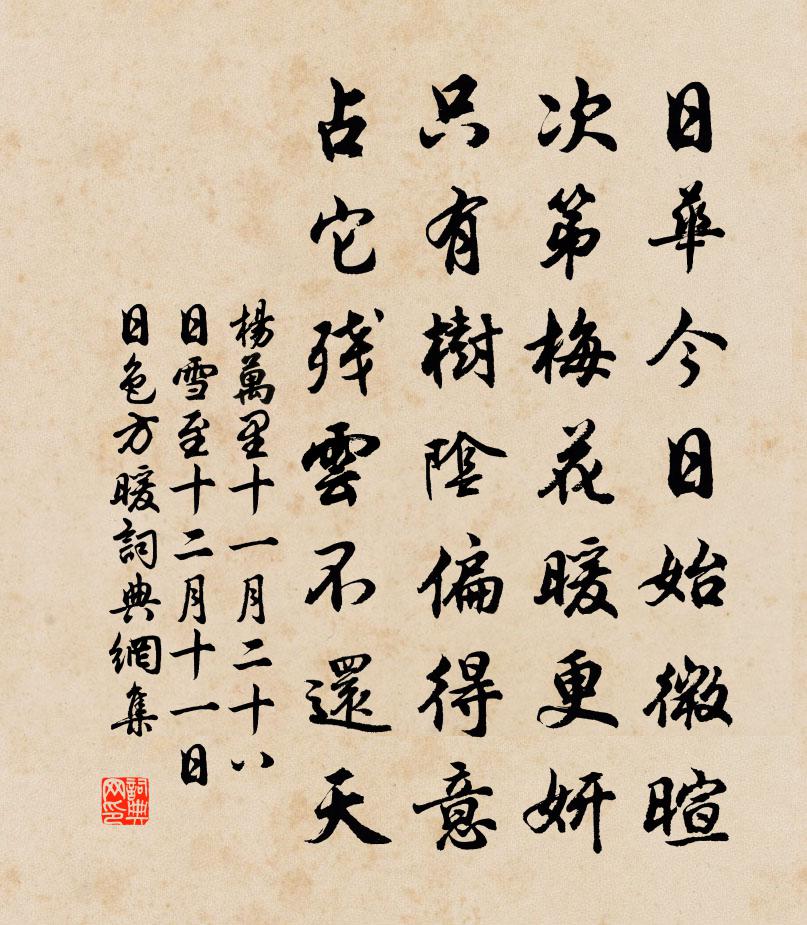 日華今日始微暄
次第梅花暖更妍
只有樹陰偏得意
占它残雲不還天
楊萬里十一月二十八
日雪至十二月十一日
日色方暖詞典網集
詞典
网印